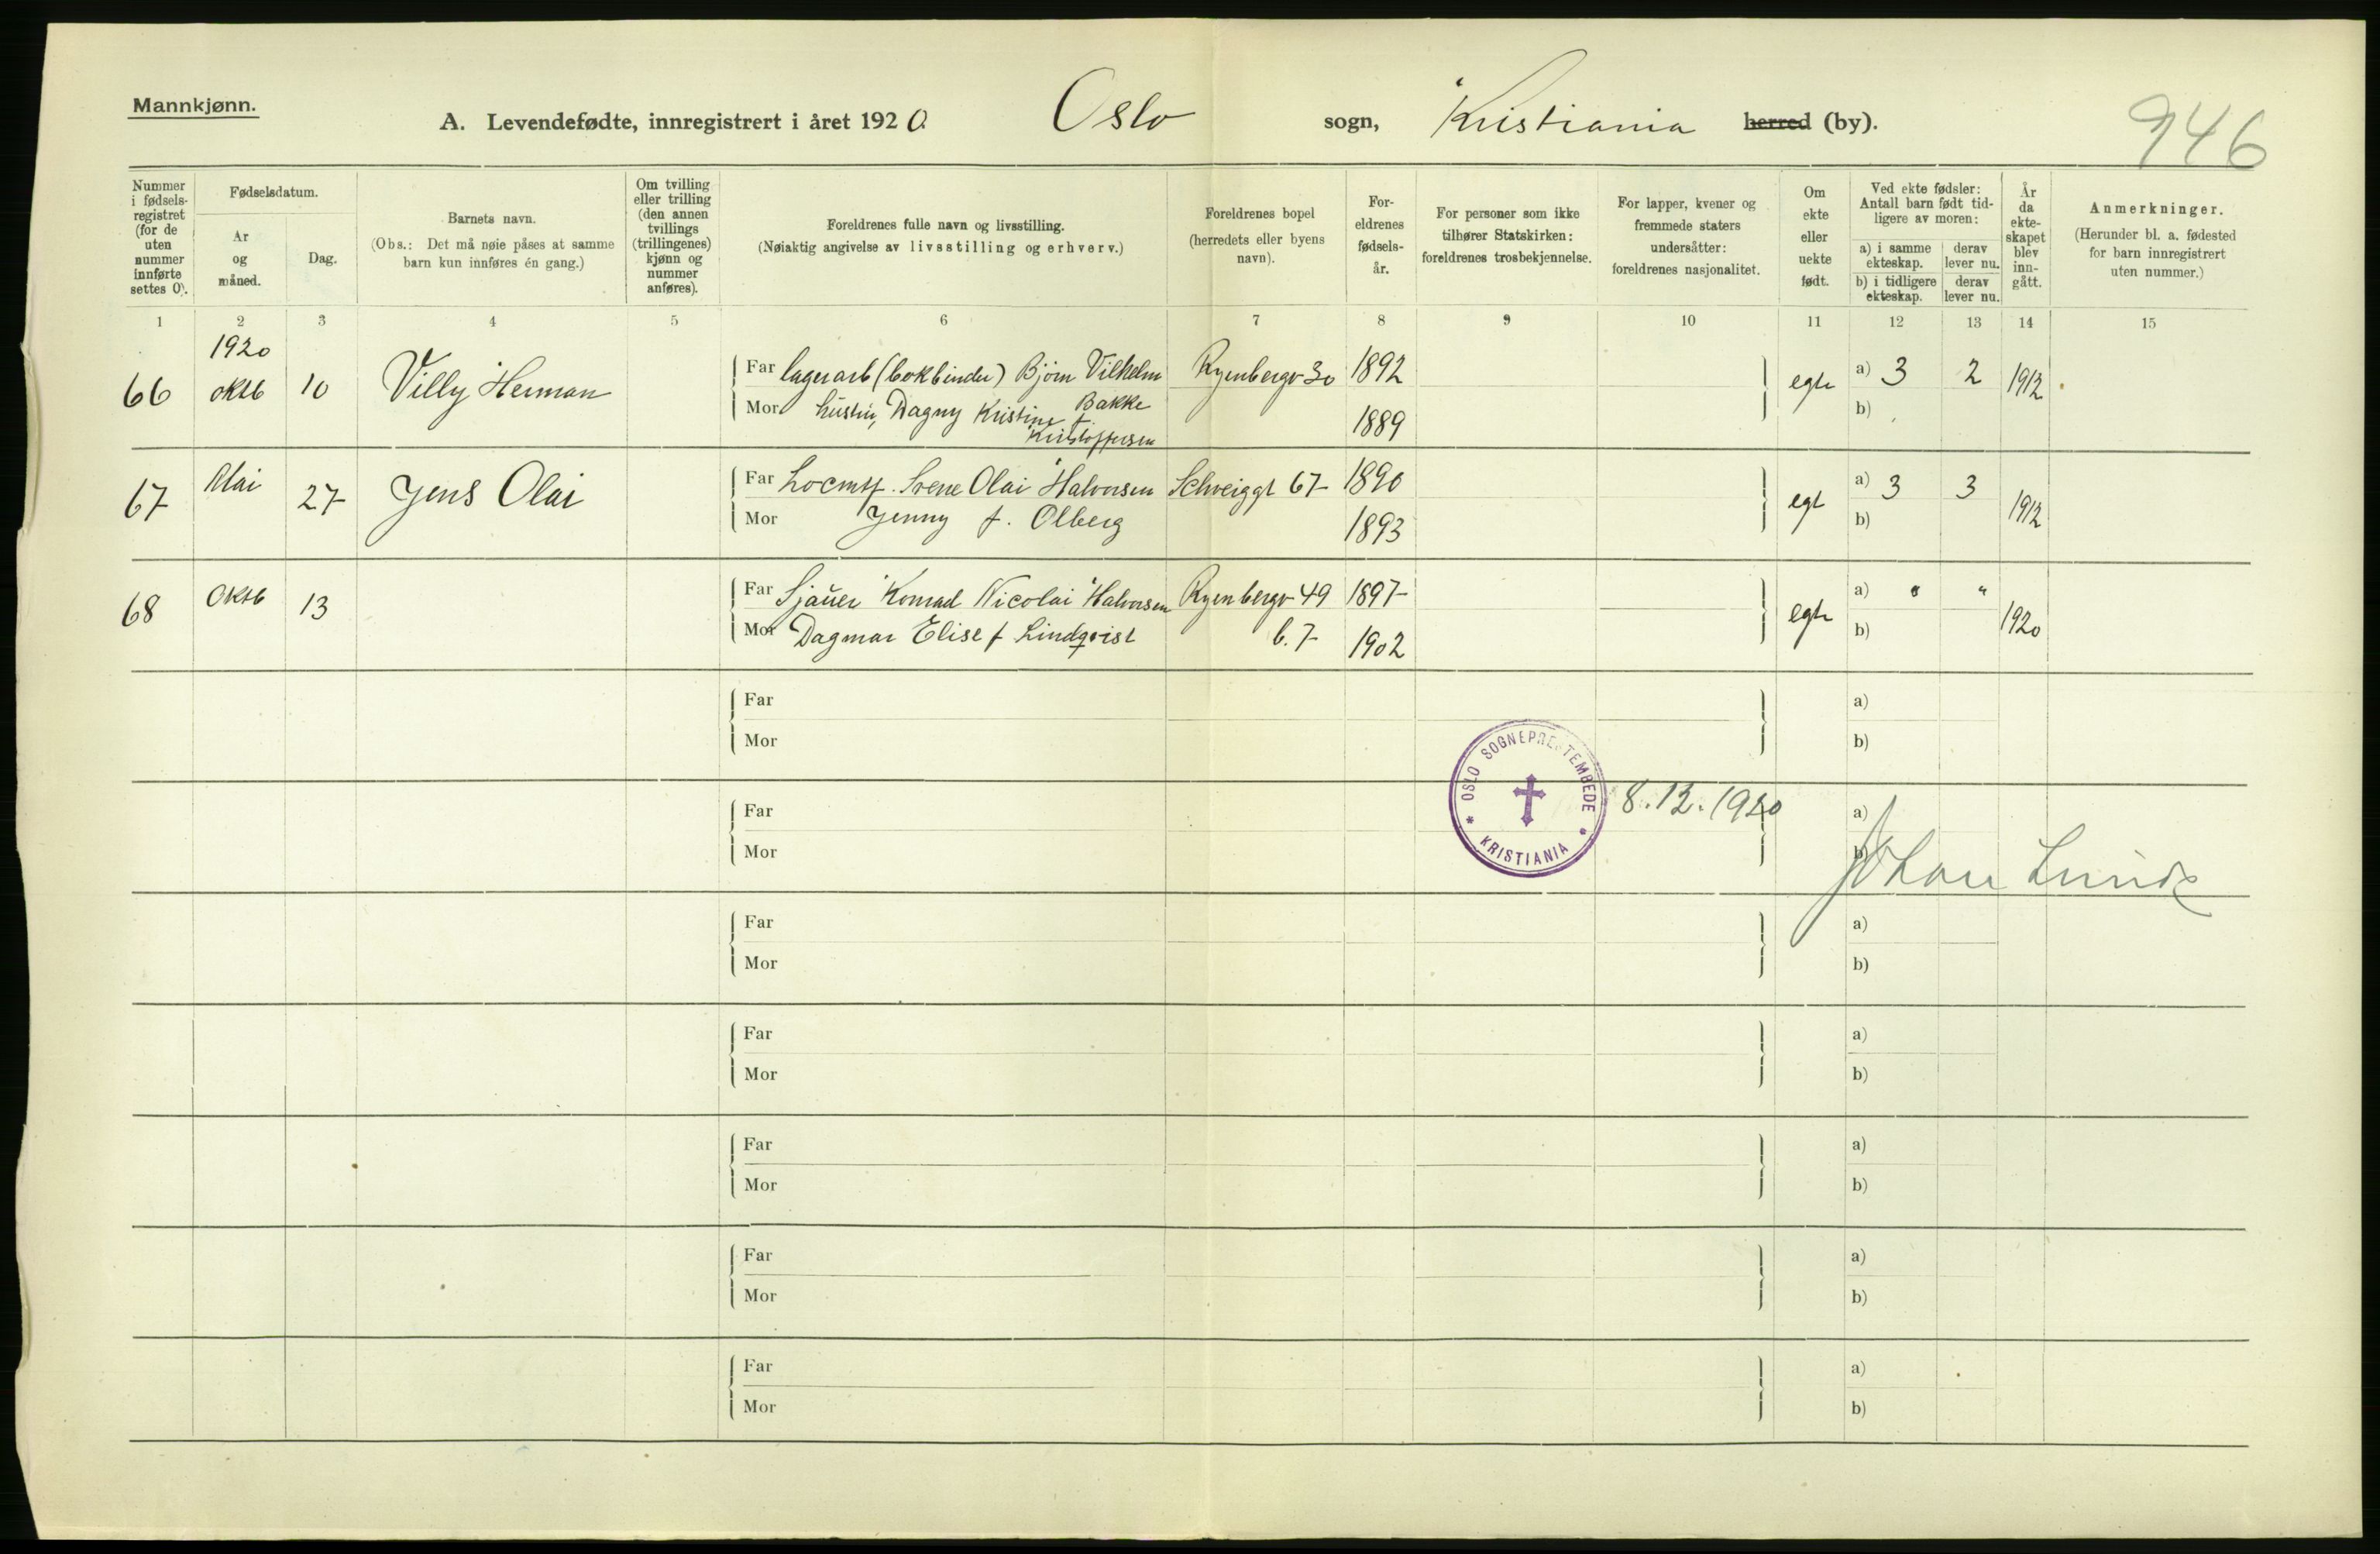 Mannkjønn.
A. Levendefødte, innregistrert i året 1920. Oslo sogn, Kristiania herred (by).
946
Nummer i fødsels-registret (for de uten nummer innførte settes 0).
Fødselsdatum.
År og måned.
Dag.
Barnets navn.
(Obs.: Det må nøie påses at samme barn kun innføres én gang.)
Om tvilling eller trilling (den annen tvillings (trillingenes) kjønn og nummer anføres).
Foreldrenes fulle navn og livsstilling.
(Nøiaktig angivelse av livsstilling og erhverv.)
Foreldrenes bopel (herredets eller byens navn).
For-eldrenes fødsels-år.
For personer som ikke tilhører Statskirken: foreldrenes trosbekjennelse.
For lapper, kvener og fremmede staters undersåtter: foreldrenes nasjonalitet.
Om ekte eller uekte født.
Ved ekte fødsler: Antall barn født tid-ligere av moren:
a) i samme ekteskap.
derav lever nu.
b) i tidligere ekteskap.
derav lever nu.
År da ekte-skapet blev inn-gått.
Anmerkninger.
(Herunder bl. a. fødested for barn innregistrert uten nummer.)
1 2 3 4 5 6 7 8 9 10 11 12 13 14 15
1920
66 oktb 10 Villy Herman Far lagerarb (bokbinder) Bjørn Vilhelm Bakke Ryenbergv 30 1892 egte a) 3 2 1912
Mor hustru, Dagny Kristine f. Kristoffersen 1889 b)
67 Mai 27 Jens Olai Far Locmtf. Svene Olai Halvorsen Schweiggt 67 1890 egt a) 3 3 1912
Mor Jenny f. Olberg 1893 b)
68 Oktb 13 Far Sjauer Konrad Nicolai Halvorsen Ryenbergv 49 1897 egte a) " " 1920
Mor Dagmar Elise f Lindqvist b. 7 1902 b)
Far a)
Mor b)
OSLO SOGNEPRESTEMBEDE
* KRISTIANIA *
8.12.1920
Far a)
Mor b)
Johan Lunde
Far a)
Mor b)
Far a)
Mor b)
Far a)
Mor b)
Far a)
Mor b)
Far a)
Mor b)